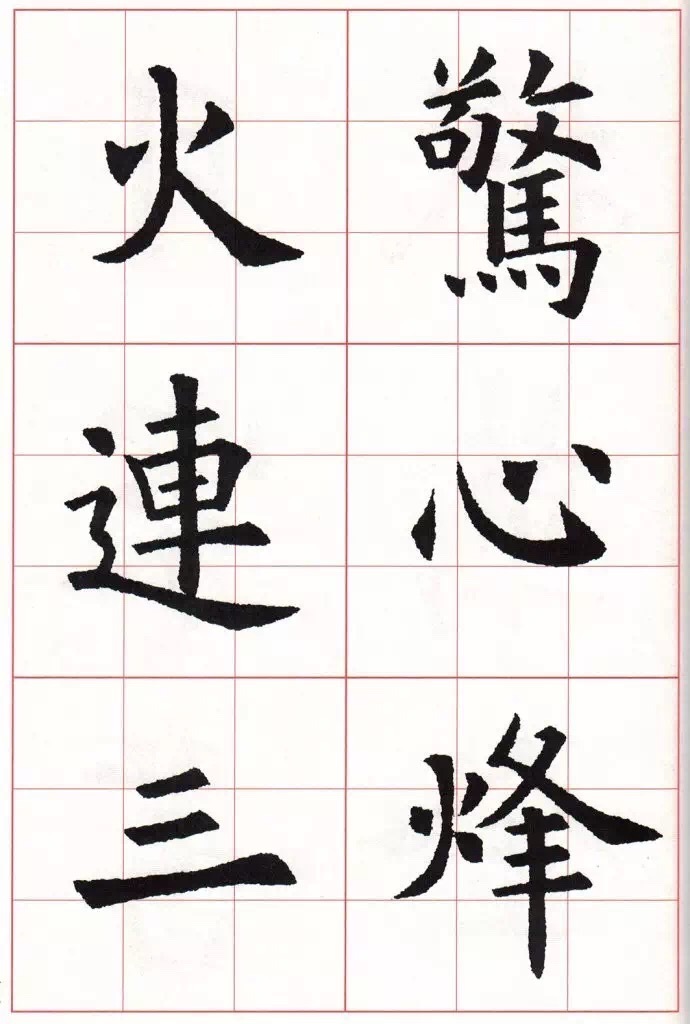 驚心烽
火連三